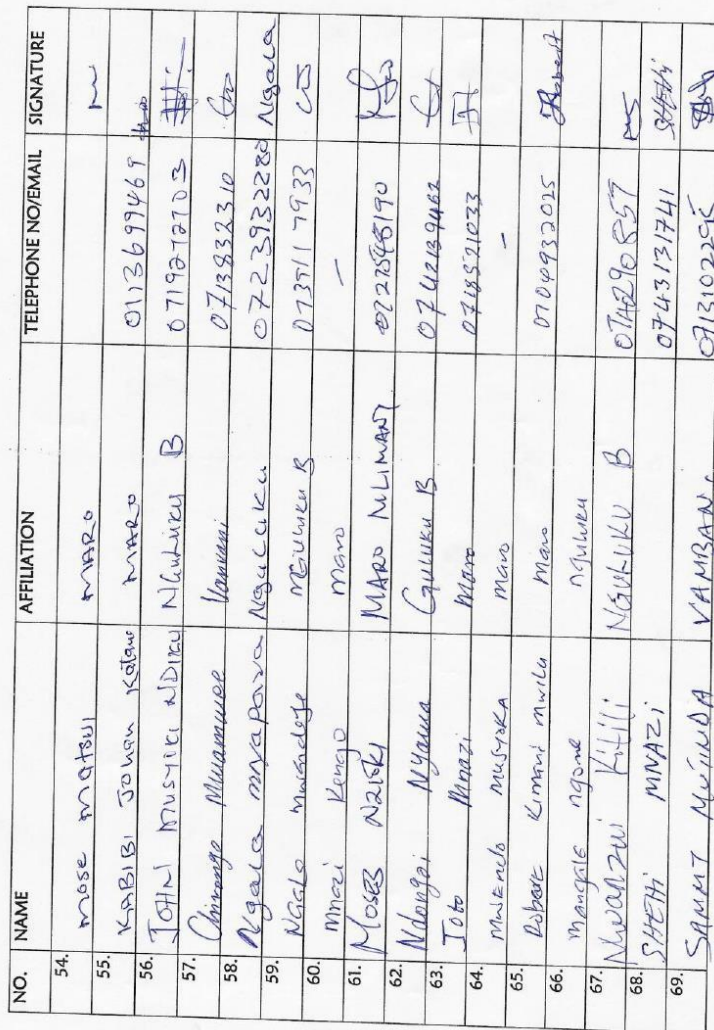 NO. NAME AFFILIATION TELEPHONE NO/EMAIL SIGNATURE
54. mose matsui MARO
55. KABIBI Johan Katane MARO 0113699469
56. JOHN MUSYOKI NDIKU NGULUKU B 0719272703
57. Chivongo Mwamwee 0713832310
58. Ngala mvapava Nguluku 0723932280 Ngala
59. Ngalo NGULUKU B
60. Mnazi Kengo Maro –
61. MOSES NZIOKI MARO MLIMANI
62. Ndongoi Nyawa GULUKU B 0742139462
63. Toto Mnazi Maro 0718521033
64. MUSYOKA Maro –
65. Robert Kimani Mwilu Maro 0104932025
66. mangale ngome nguluku
67. Mwanzwi Kitili NGULUKU B
68. SHEHI MNAZI 0743131741 SHEHI
69. SAMMY MUINDA